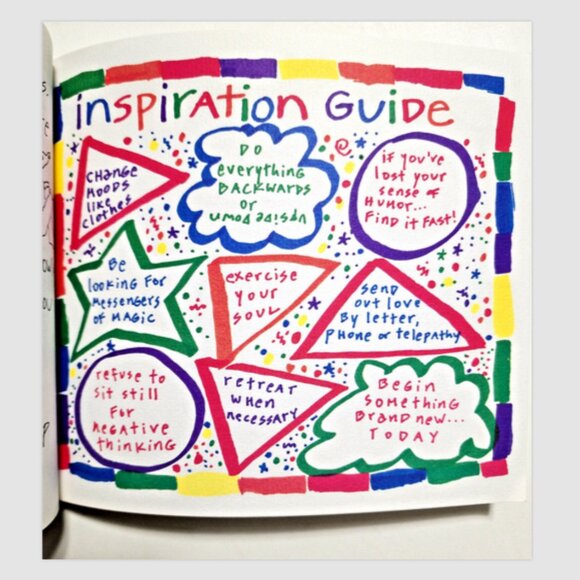 inspiration Guide
CHANGE
MOODS
like
clothes
DO
everything
BACKWARDS
or
upside Down
if you've
lost your
sense of
Humor...
Find it Fast!
Be
looking For
Messengers
of MAGIC
exercise
your
soul
send
out love
By letter,
phone or telepathy
refuse to
sit still
For
negative
thinking
retreat
when
necessary
Begin
something
Brand new...
TODAY